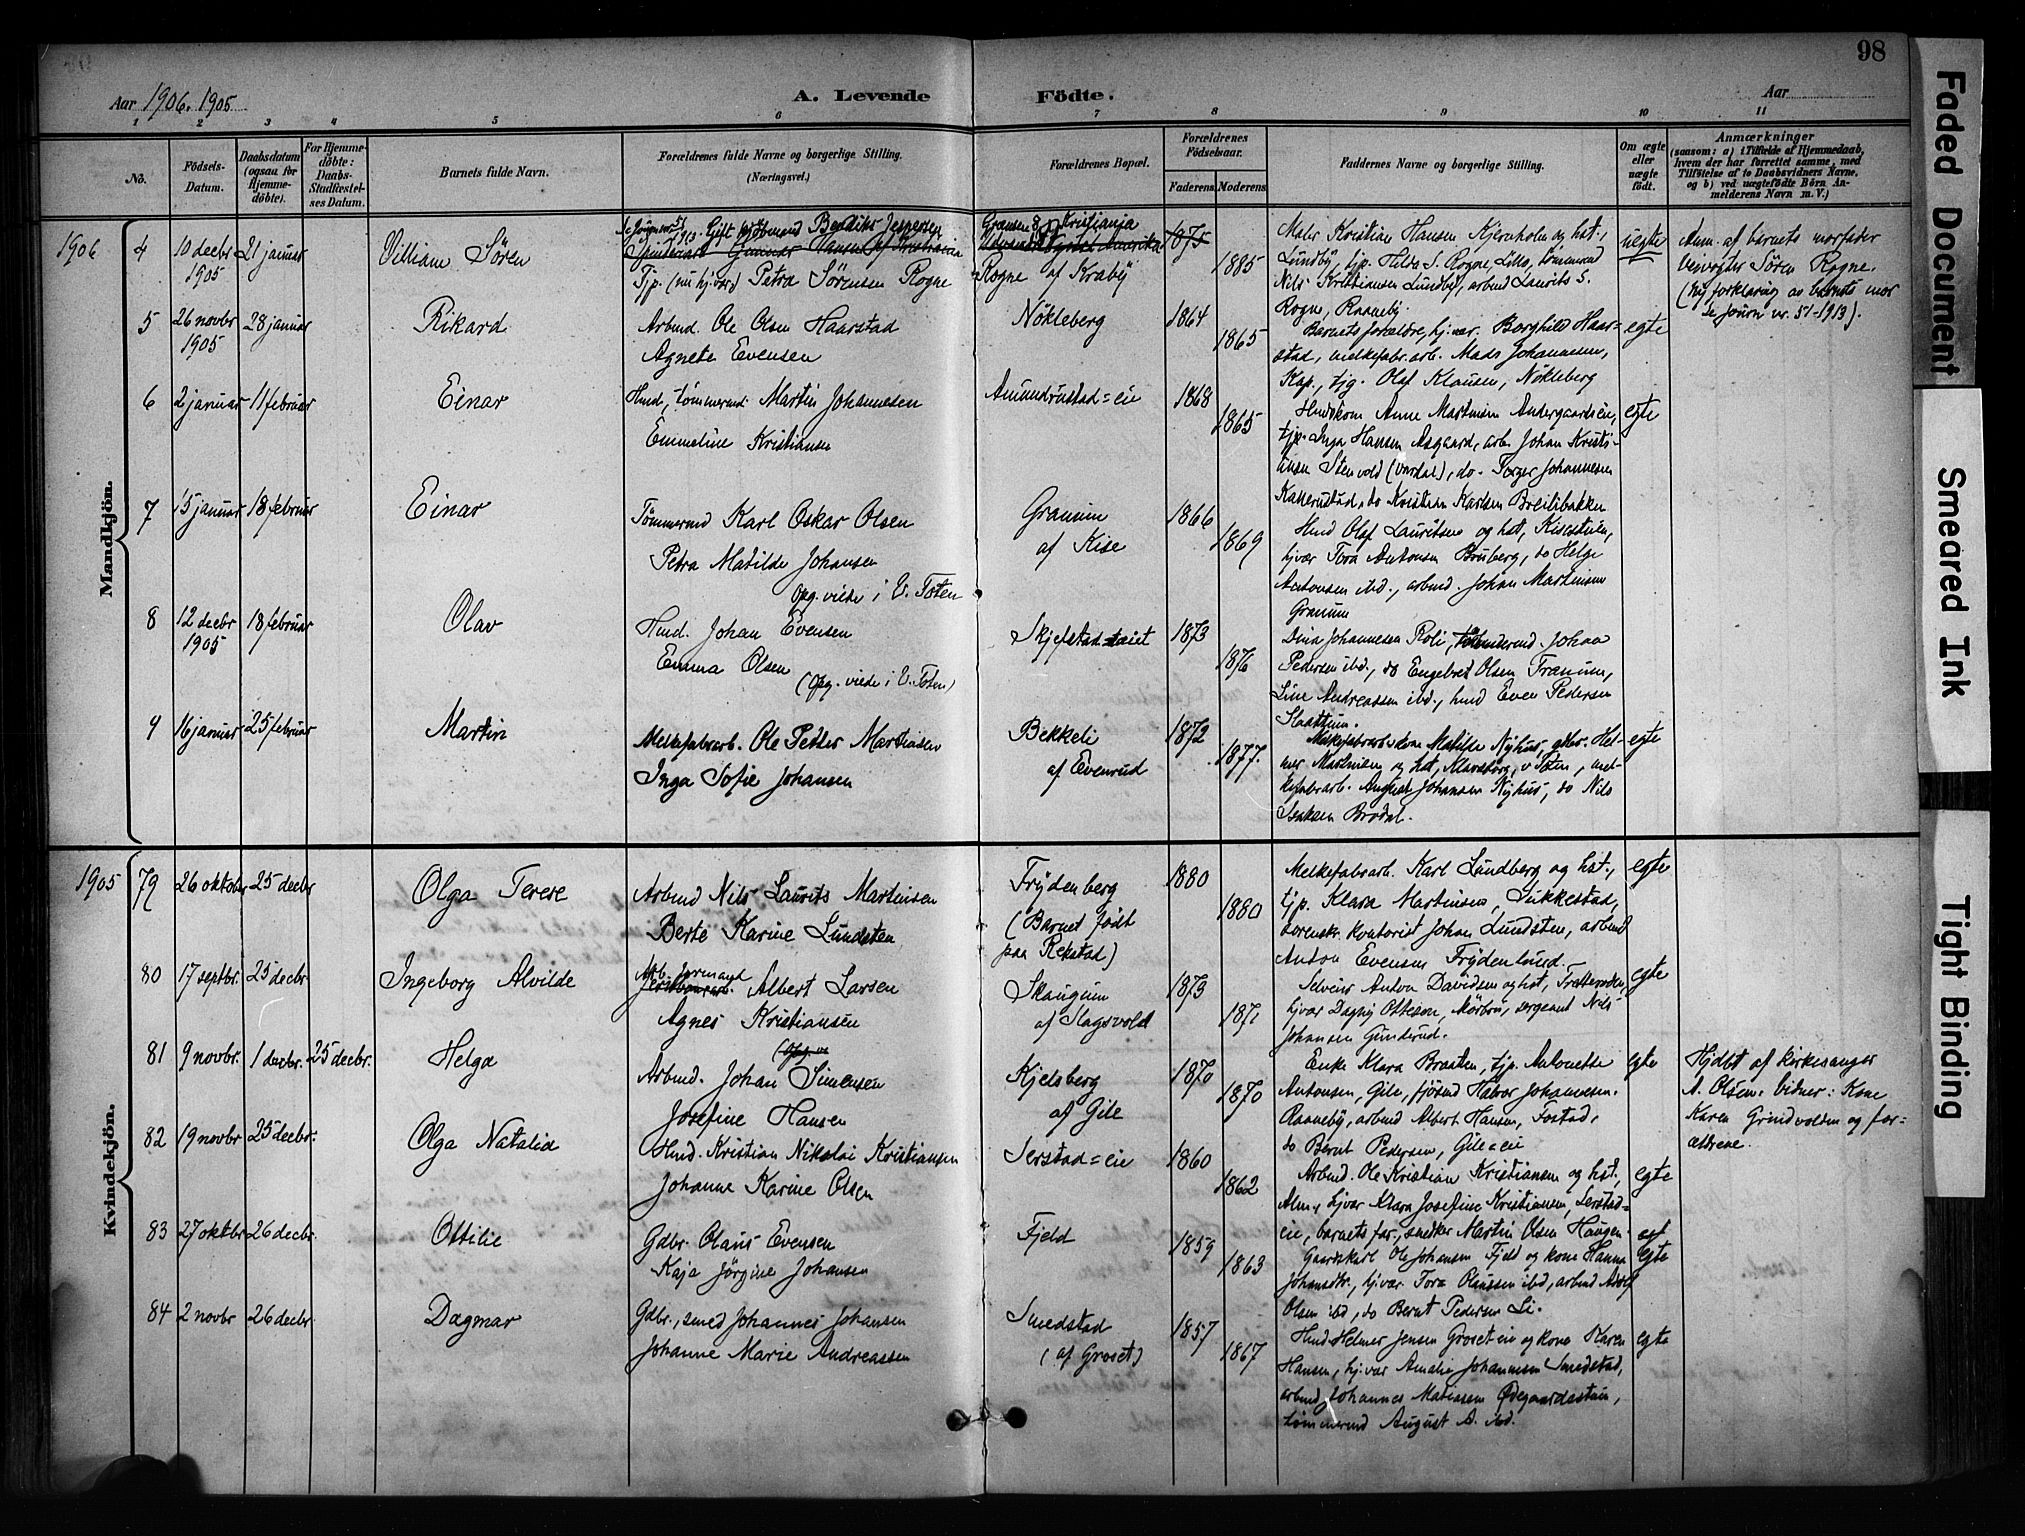 98
Aar 1906. 1905
A. Levende Födte.
Aar
1 2 3 4 5 6 7 8 9 10 11
No.
Födsels-Datum.
Daabsdatum (ogsaa for Hjemme-döbte).
For Hjemme-döbte: Daabs-Stadfæstel-ses Datum.
Barnets fulde Navn.
Forældrenes fulde Navne og borgerlige Stilling. (Næringsvei.)
Forældrenes Bopæl.
Forældrenes Födselsaar.
Faderens. Moderens.
Faddernes Navne og borgerlige Stilling.
Om ægte eller uægte födt.
Anmærkninger
(saasom: a) i Tilfælde af Hjemmedaab, hvem der har forrettet samme, med Tilföielse af to Daabsvidners Navne, og b) ved uægtefödte Börn An-melderens Navn m. V.)
Mandkjön.
1906 4 10 decbr 1905 21 januar
Villiam Sören
Gift Bendiks Jespersen
Gunnar Hansen af Kristiania
Tjp. (nu hj.vær) Petra Sörensen Rogne
Kristiania
Rogne af Kraby
1875 1885
Maler Kristian Hansen Kjernholm og hst.,
Lundby, tjp. Hilda S. Rogne, Lillo, tömmermd
Nils Kristiansen Lundby, arbmd Laurits S.
Rogne, Raaneby
uegte
Anm. af barnets morfader
veivogter Sören Rogne.
(Ny forklaring av barnets mor
se journ nr. 51-1913).
5 26 novbr 1905 28 januar
Rikard
Arbmd. Ole Olsen Haarstad
Agnete Evensen
Nökleberg
1864 1865
Barnets forældre, hj.vær. Borghild Haar-
stad, melkefabr.arb. Mads Johannesen,
Kap., tjg. Olaf Klausen, Nökleberg
egte
6 2 januar 11 februar
Einar
Hmd, tömmermd. Martin Johannesen
Emmeline Kristiansen
Amundrustad=eie
1868 1865
Hmdskone Anne Martinsen
tjp. Inga Hansen Asgaard, arb. Johan Kristi-
ansen Stenvold (Vardal), do. Johannesen
do Kristian Karlsen Breilibakken
egte
7 15 januar 18 februar
Einar
Tömmermd Karl Oskar Olsen
Petra Matilde Johansen
Opg. viede i V. Toten
Granum
af Kise
1866 1869
Hmd Olaf Lauritsen og hst, Kisestuen,
hj.vær Tora Antonsen Bruberg, do Helge
Antonsen ibd., arbmd. Johan Martinsen
Granum
8 12 decbr 1905 18 februar
Olav
Hmd. Johan Evensen
Emma Olsen (Opg. viede i V. Toten)
Skjelstad
1873 1876
Dina Johannesen Roli, tömmermd. Johan
Pedersen ibd., do Engebret Olsen Tranum,
Line Andreassen ibd., hmd Even Pedersen
Slaattum.
9 16 januar 25 februar
Martin
Melkefabrarb. Ole Petter Martinsen
Inga Sofie Johansen
Bekkeli
af Evenrud
1872 1877.
Matilde Nyhus, gdbr. Hel-
mer Martinsen og hst, Klaseborg, V. Toten, mel-
kefabrarb. August Johansen Nyhus, do Nils
Isaksen Brodal.
egte
Kvindekjön.
1905 79 26 oktobr 25 decbr
Olga Terese
Arbmd Nils Laurits Martinsen
Berte Karine Lundsten
Frydenberg
(Barnet födt
paa Rekstad)
1880 1880
Melkefabrarb. Karl Lundberg og hst.,
tjp. Klara Martinsen, Sukkestad,
sorenskr. kontorist Johan Lundsten, arbmd
Anton Evensen Frydenlund.
egte
80 17 septbr. 25 decbr
Ingeborg Alvilde
Arb. formand Albert Larsen
Agnes Kristiansen
Skaugum
af Slagsvold
1873 1871
Selveier Anton Davidsen og hst,
hj.vær Dagny Ottesen, Mörbru, sergeant Nils
Johansen Gunderud.
egte
81 9 novbr. 1 decbr. 25 decbr.
Helga
Arbmd. Johan Simensen
Josefine Hansen
Kjelsberg
af Gile
1870 1870
Enke Klara Braaten, tjp. Antonette
Antonsen, Gile, fjösmd Halvor Johannesen.
Raaneby, arbmd Albert Hansen, Fostad,
do Bernt Pedersen, Gile=eie
egte
Hjdöbt af kirkesanger
A. Olsen. vidner: Kone
Karen Grindvolden og for-
ældrene.
82 19 novbr 25 decbr.
Olga Natalia
Hmd. Kristian Nikolai Kristiansen
Johanne Karine Olsen
Serstad=eie
1860 1862
Arbmd. Ole Kristian Kristiansen og hst.,
Alm, hj.vær Klara Josefine Kristiansen, Serstad=
eie, barnets far, snedker Martin Olsen Haugen
egte
83 27 oktbr 26 decbr.
Ottilie
Gdbr. Olaus Evensen
Kaja Jörgine Johansen
Fjeld
1859 1863
Gaardskarl Ole Johansen Fjeld og kone Hanna
Johansdtr, hj.vær Tora Olaussen ibd, arbmd Adolf
Olsen ibd, do Bernt Pedersen Li.
egte
84 2 novbr 26 decbr
Dagmar
Gdbr., smed Johannes Johansen
Johanne Marie Andreassen
Smedstad
(af Groset)
1857 1867
Hmd Helmer Jensen Groset eie og kone Karen
Hansen, hj.vær Amalie Johannesen Smedstad,
arbmd Johannes Matiassen Ødegaardsstuen,
tömmermd August A. ibd.
egte
Faded Document
Smeared Ink
Tight Binding